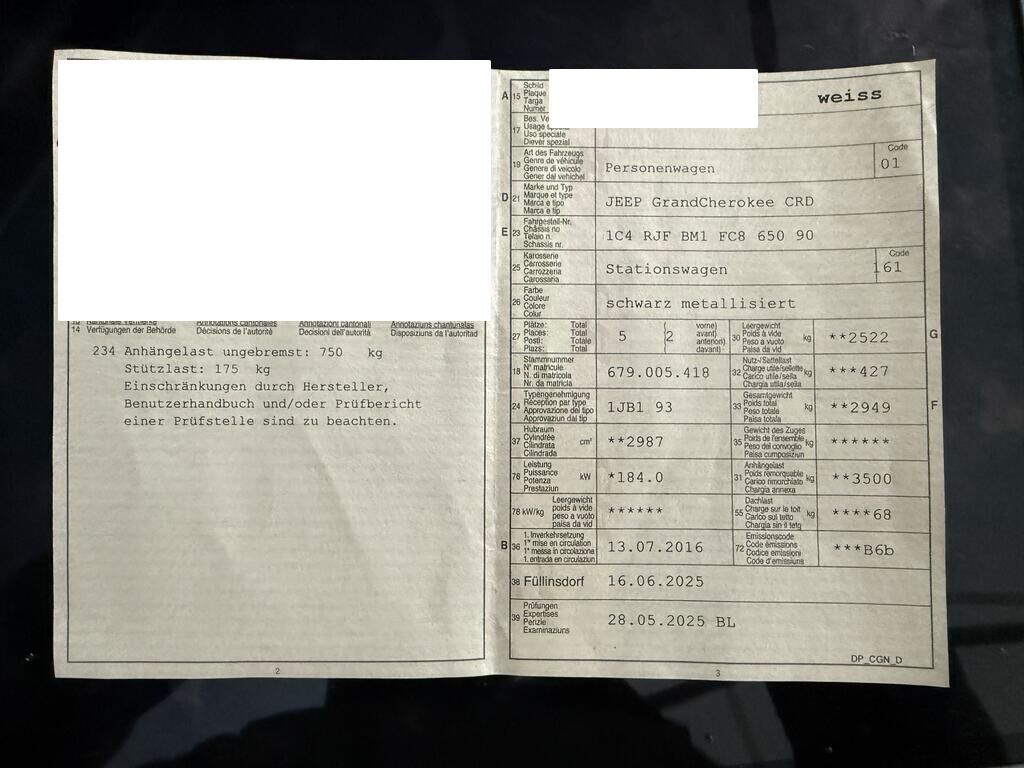 14 Verfügungen der Behörde Décisions de l'autorité Decisioni dell'autorità Disposiziuns da l'autoritad
234 Anhängelast ungebremst: 750 kg
Stützlast: 175 kg
Einschränkungen durch Hersteller,
Benutzerhandbuch und/oder Prüfbericht
einer Prüfstelle sind zu beachten.
2
A 15 Schild
Plaque
Targa
Numer
weiss
17 Bes. Ve
Usage
Uso speciale
Diever spezial
19 Art des Fahrzeugs
Genre de véhicule
Genere di veicolo
Gener dal vehichel
Personenwagen
Code
01
D 21 Marke und Typ
Marque et type
Marca e tipo
Marca e tip
JEEP GrandCherokee CRD
E 23 Fahrgestell-Nr.
Châssis no
Telaio n.
Schassis nr.
1C4 RJF BM1 FC8 650 90
25 Karosserie
Carrosserie
Carrozzeria
Carossaria
Stationswagen
Code
161
26 Farbe
Couleur
Colore
Colur
schwarz metallisiert
27 Plätze: Total
Places: Total
Posti: Totale
Plazs: Total
5 2
vorne)
avant)
anteriori)
davant)
30 Leergewicht
Poids à vide
Peso a vuoto
Paisa da vid
kg
**2522
G
18 Stammnummer
N° matricule
N. di matricola
Nr. da matricla
679.005.418
32 Nutz-/Sattellast
Charge utile/sellette
Carico utile/sella
Chargia utila/sella
kg
***427
24 Typengenehmigung
Réception par type
Approvazione del tipo
Approvaziun dal tip
1JB1 93
33 Gesamtgewicht
Poids total
Peso totale
Paisa totala
kg
**2949
F
37 Hubraum
Cylindrée
Cilindrata
Cilindrada
cm³
**2987
35 Gewicht des Zuges
Poids de l'ensemble
Peso del convoglio
Paisa cumposiziun
kg
******
76 Leistung
Puissance
Potenza
Prestaziun
kW
*184.0
31 Anhängelast
Poids remorquable
Carico rimorchiato
Chargia annexa
kg
**3500
78 kW/kg
Leergewicht
poids à vide
peso a vuoto
paisa da vid
******
55 Dachlast
Charge sur le toit
Carico sul tetto
Chargia sin il tetg
kg
****68
B 36 1. Inverkehrsetzung
1re mise en circulation
1a messa in circolazione
1. entrada en circulaziun
13.07.2016
72 Emissionscode
Code émissions
Codice emissioni
Code d'emissiuns
***B6b
38 Füllinsdorf
16.06.2025
39 Prüfungen
Expertises
Perizie
Examinaziuns
28.05.2025 BL
DP_CGN_D
3